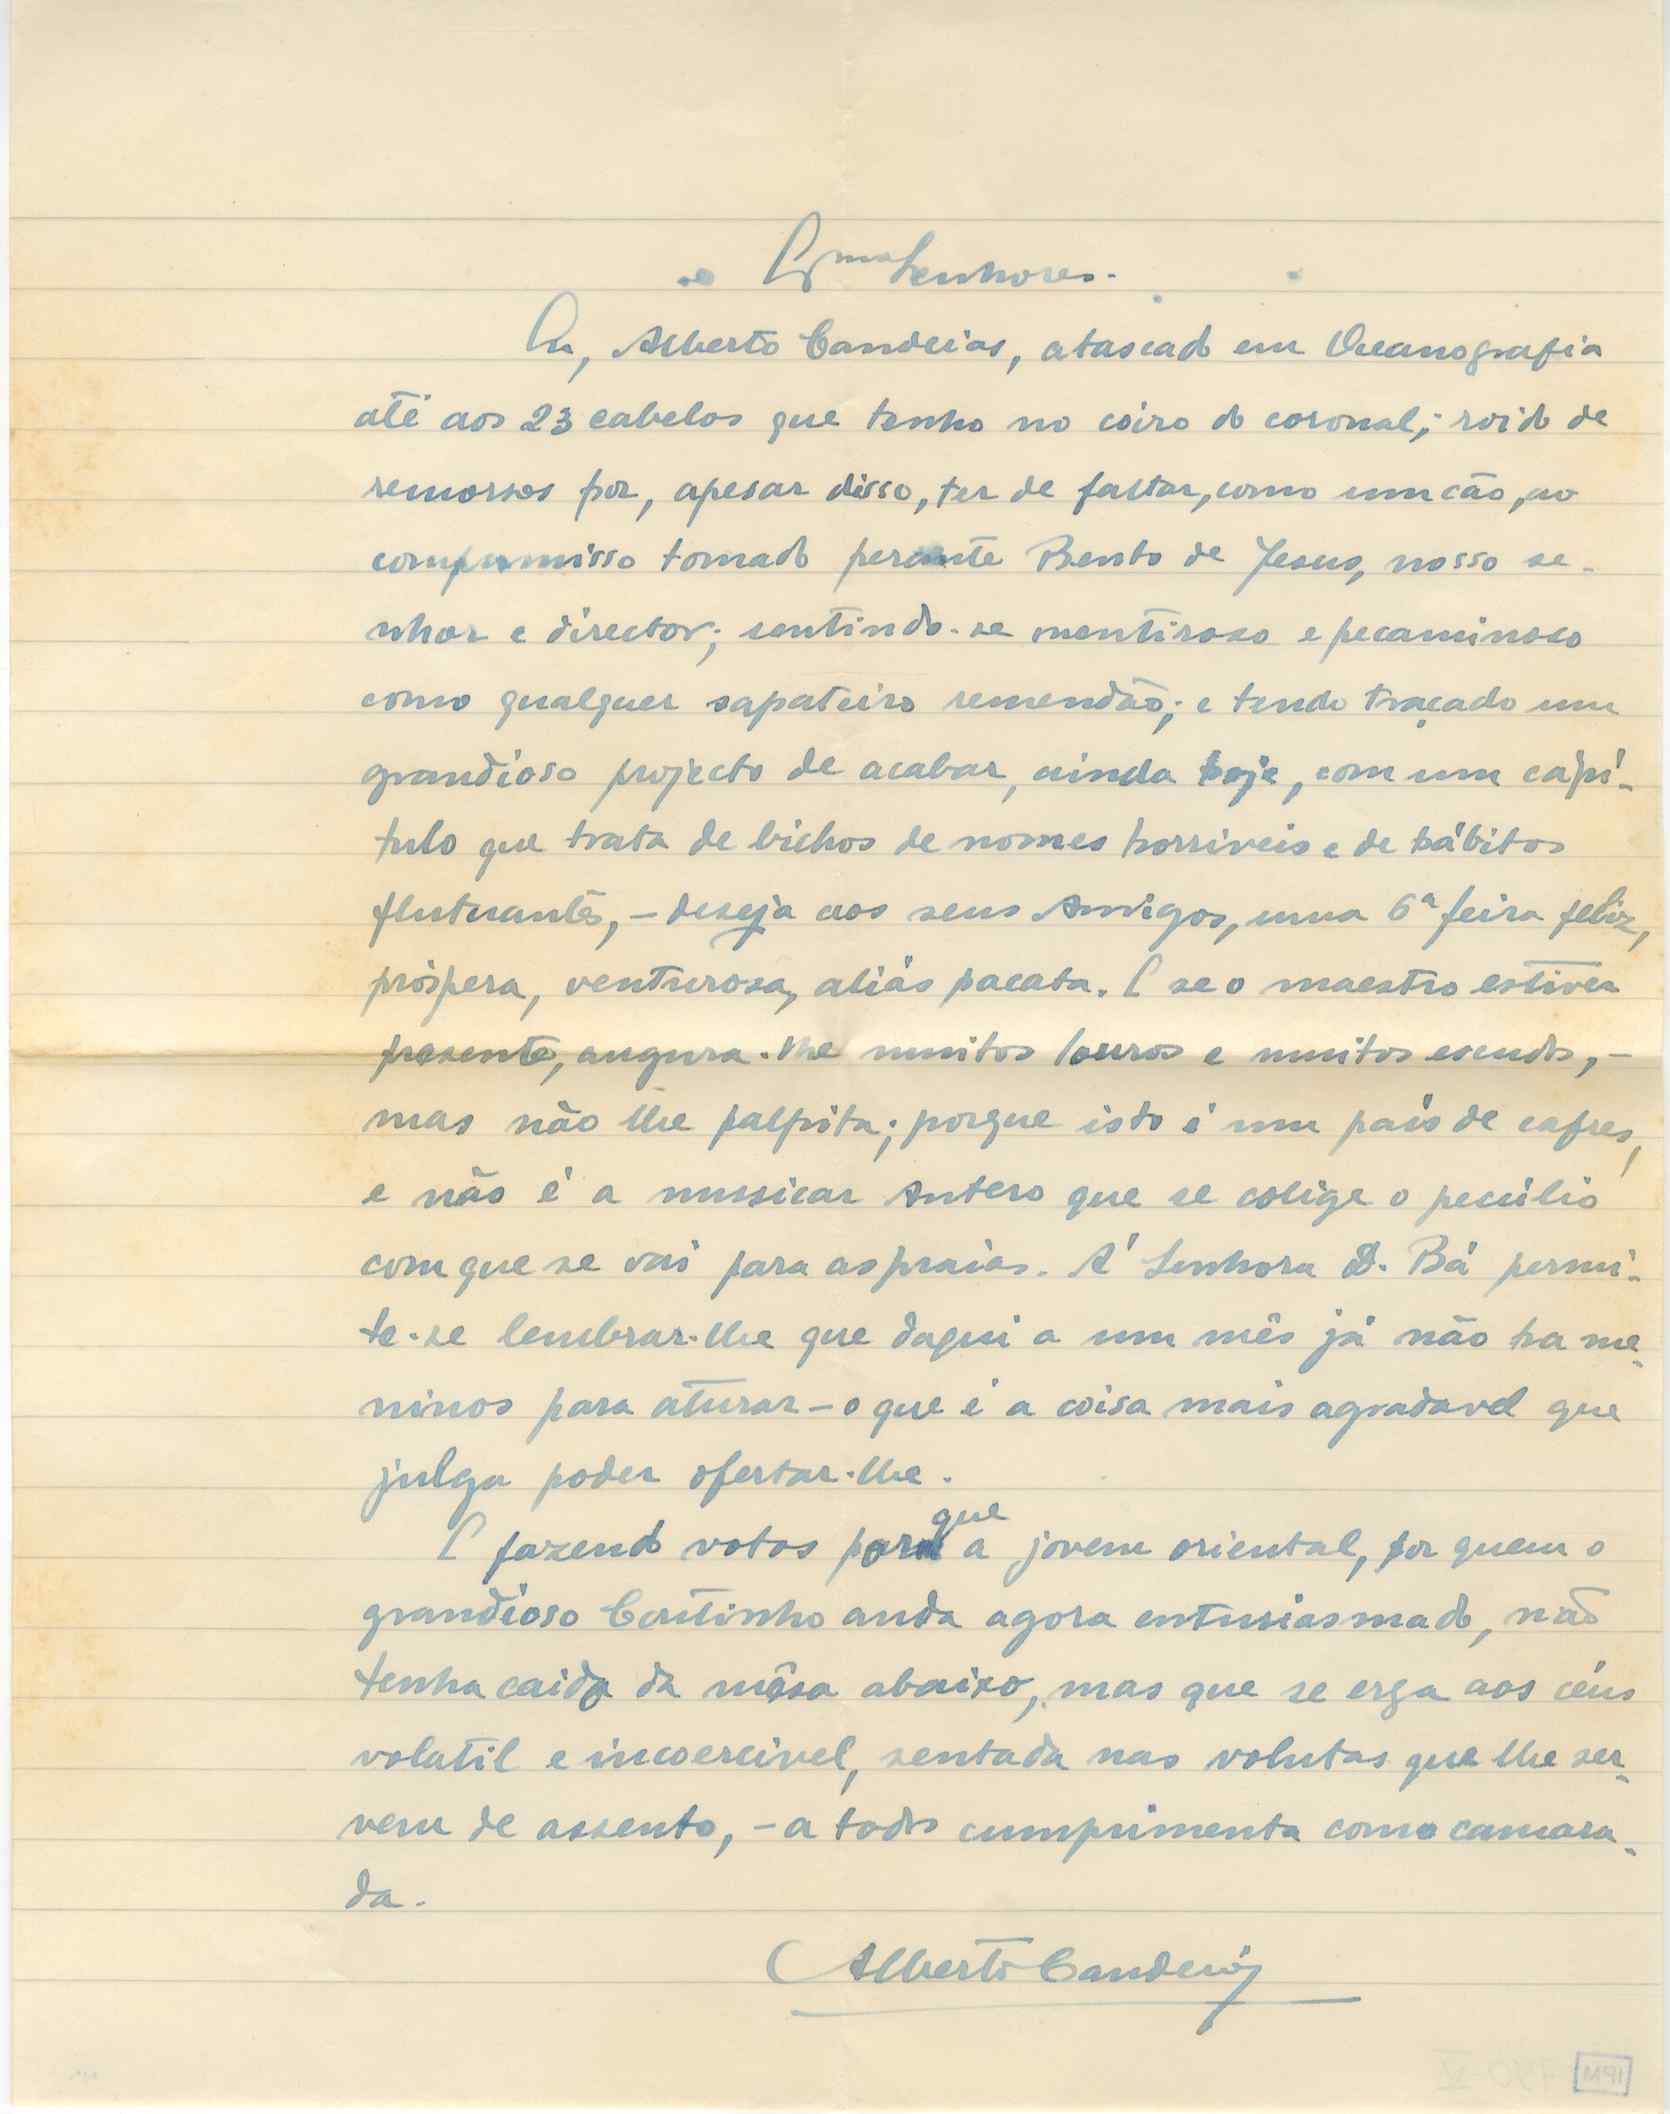 Exmos Senhores.
Eu, Alberto Candeias, atascado em Oceanografia
até aos 23 cabelos que tenho no coiro do coronal; roido de
remorsos por, apesar disso, ter de faltar, como um cão, ao
compromisso tomado perante Bento de Jesus, nosso se-
nhor e director; sentindo-se mentiroso e pecaminoso
como qualquer sapateiro remendão; e tendo traçado um
grandioso projecto de acabar, ainda hoje, com um capí-
tulo que trata de bichos de nomes horriveis e de hábitos
flutuantes, - deseja aos seus Amigos, uma 6ª feira feliz,
próspera, venturosa, aliás pacata. E se o maestro estiver
presente, augura-lhe muitos louros e muitos escudos, -
mas não lhe palpita; porque isto é um país de cafres,
e não é a mussicar Antero que se colige o pecúlio
com que se vai para as praias. Á Senhora D. Bá permi-
te-se lembrar-lhe que daqui a um mês já não ha me-
ninos para aturar - o que é a coisa mais agradavel que
julga poder ofertar-lhe.
E fazendo votos para que a jovem oriental, por quem o
grandioso Coutinho anda agora entusiasmado, não
tenha caido da mêsa abaixo, mas que se erga aos céus
volatil e incoercivel, sentada nas volutas que lhe ser-
vem de assento, - a todos cumprimenta como camara-
da.
Alberto Candeias
IPM